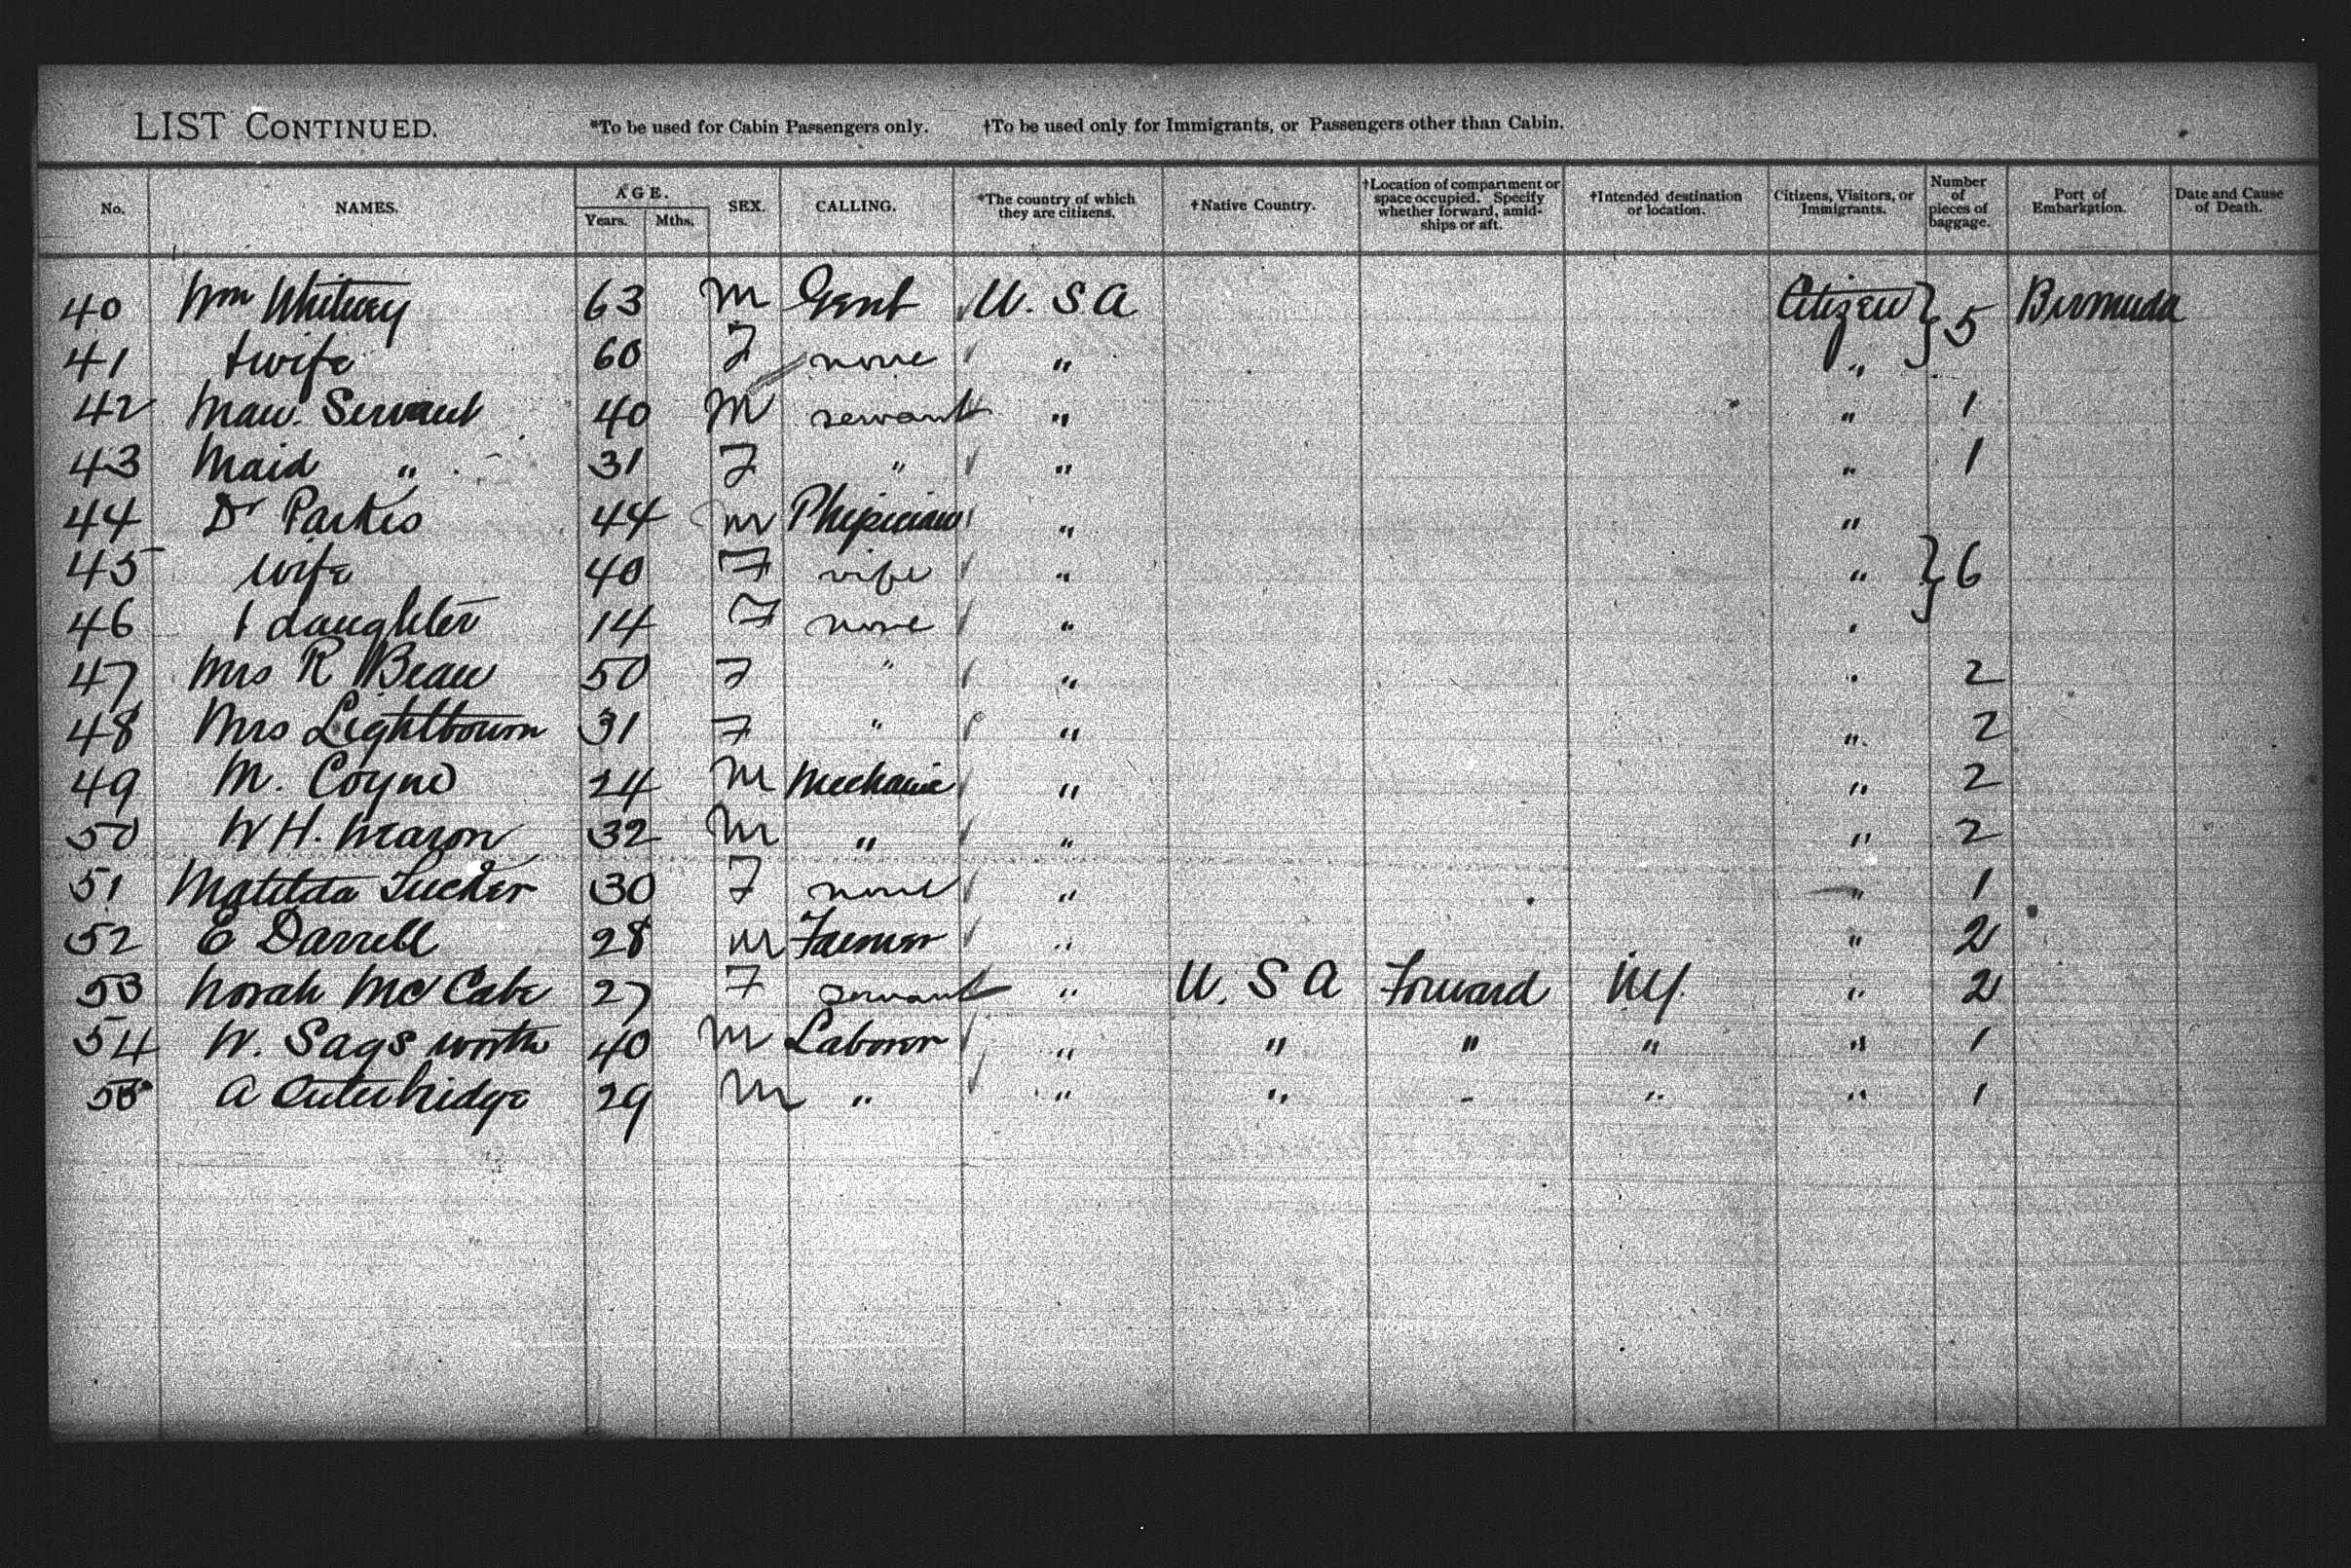 LIST CONTINUED. *To be used for Cabin Passengers only. †To be used only for Immigrants, or Passengers other than Cabin.
No. NAMES. AGE. Years. Mths. SEX. CALLING. *The country of which they are citizens. †Native Country. †Location of compartment or space occupied. Specify whether forward, amidships or aft. †Intended destination or location. Citizens, Visitors, or Immigrants. Number of pieces of baggage. Port of Embarkation. Date and Cause of Death.
40 Wm Whitney 63 M Gent U. S A Citizen } 5 Bermuda
41 + wife 60 F none " "
42 Man Servant 40 M servant " " 1
43 Maid " 31 F " " " 1
44 Dr Parkes 44 M " "
45 wife 40 F wife " " } 6
46 1 daughter 14 F none " "
47 Mrs R Bean 50 F " " " 2
48 Mrs Lightbourn 31 F " " " 2
49 M. Coyne 24 M Mechanic " " 2
50 W H. 32 M " " " 2
51 Matilda Tucker 30 F none " " 1
52 E Darrell 28 M Farmer " " 2
53 Norah McCabe 27 F servant " U. S A Forward N.Y. " 2
54 W. Sags worth 40 M Laborer " " " " " 1
55 A Outerbridge 29 M " " " " " " 1